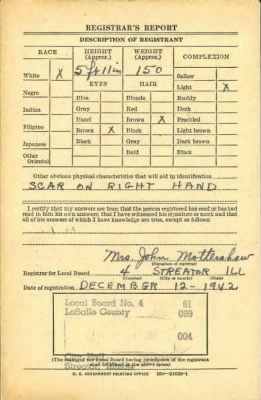 REGISTRAR'S REPORT
DESCRIPTION OF REGISTRANT
RACE HEIGHT (Approx.) WEIGHT (Approx.) COMPLEXION
White X 5 ft 11 in 150 Sallow
Light X
Negro EYES HAIR Ruddy
Blue Blonde Dark
Indian Gray Red Freckled
Hazel Brown X Light brown
Filipino Brown X Black Dark brown
Japanese Black Gray Black
Other Bald
Oriental
Other obvious physical characteristics that will aid in identification
SCAR ON RIGHT HAND
I certify that my answers are true; that the person registered has read or has had
read to him his own answers; that I have witnessed his signature or mark and that
all of his answers of which I have knowledge are true, except as follows:
Mrs. John Mottershaw
(Signature of registrar)
Registrar for Local Board 4 STREATOR ILL
(Number) (City or county) (State)
Date of registration DECEMBER 12-1942
Local Board No. 4 61
LaSalle County 099
004
(The stamp of the Local Board having jurisdiction of the registrant
shall be placed in the above space)
U. S. GOVERNMENT PRINTING OFFICE